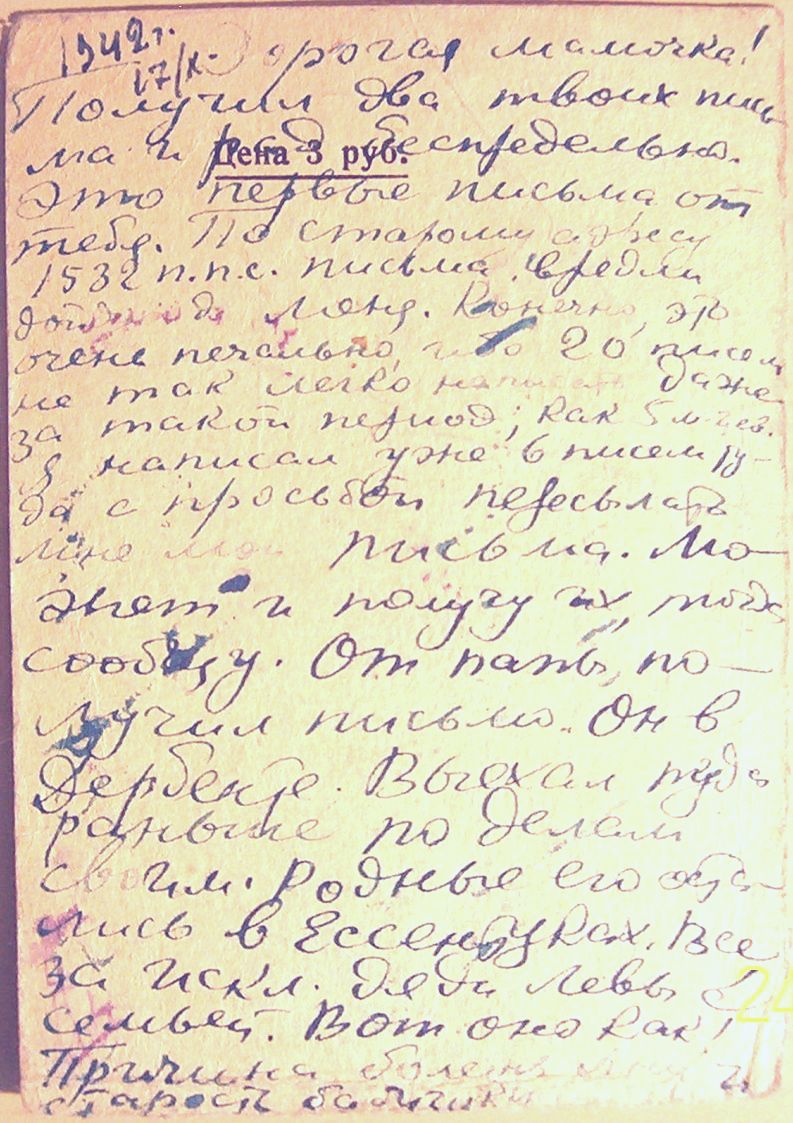 1942 г.
17/X.
Дорогая мамочка!
Получил два твоих пись-
ма и рад беспредельно.
Цена 3 руб.
Это первые письма от
тебя. По старому адресу
1532 п.п.с. письма вредли
дойдут до меня. Конечно, это
очень печально, ибо 20 писем
не так легко написать даже
за такой период, как 5 м-цев.
Я написал уже 6 писем ту-
да с просьбой пересылать
мне мои письма. Мо-
жет и получу их, тогда
сообщу. От папы по-
лучил письмо. Он в
Дербенте. Выехал туда
раньше по делам
своим. Родные его оста-
лись в Ессентуках. Все
за искл. дяди Левы с
семьей. Вот оно как!
Причина болезнь и
старость бабушки
24